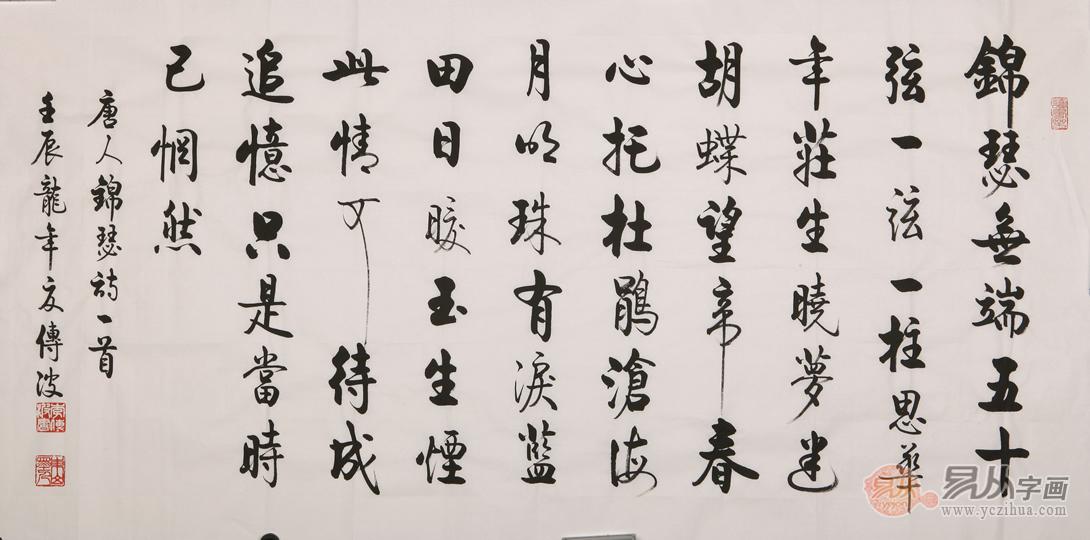 錦瑟無端五十
弦一弦一柱思華
年莊生曉夢迷
胡蝶望帝春
心托杜鵑滄海
月明珠有淚藍
田日暖玉生煙
此情可待成
追憶只是當時
已惘然
唐人錦瑟詩一首
壬辰龍年 傳波
易从字画
www.yczihua.com